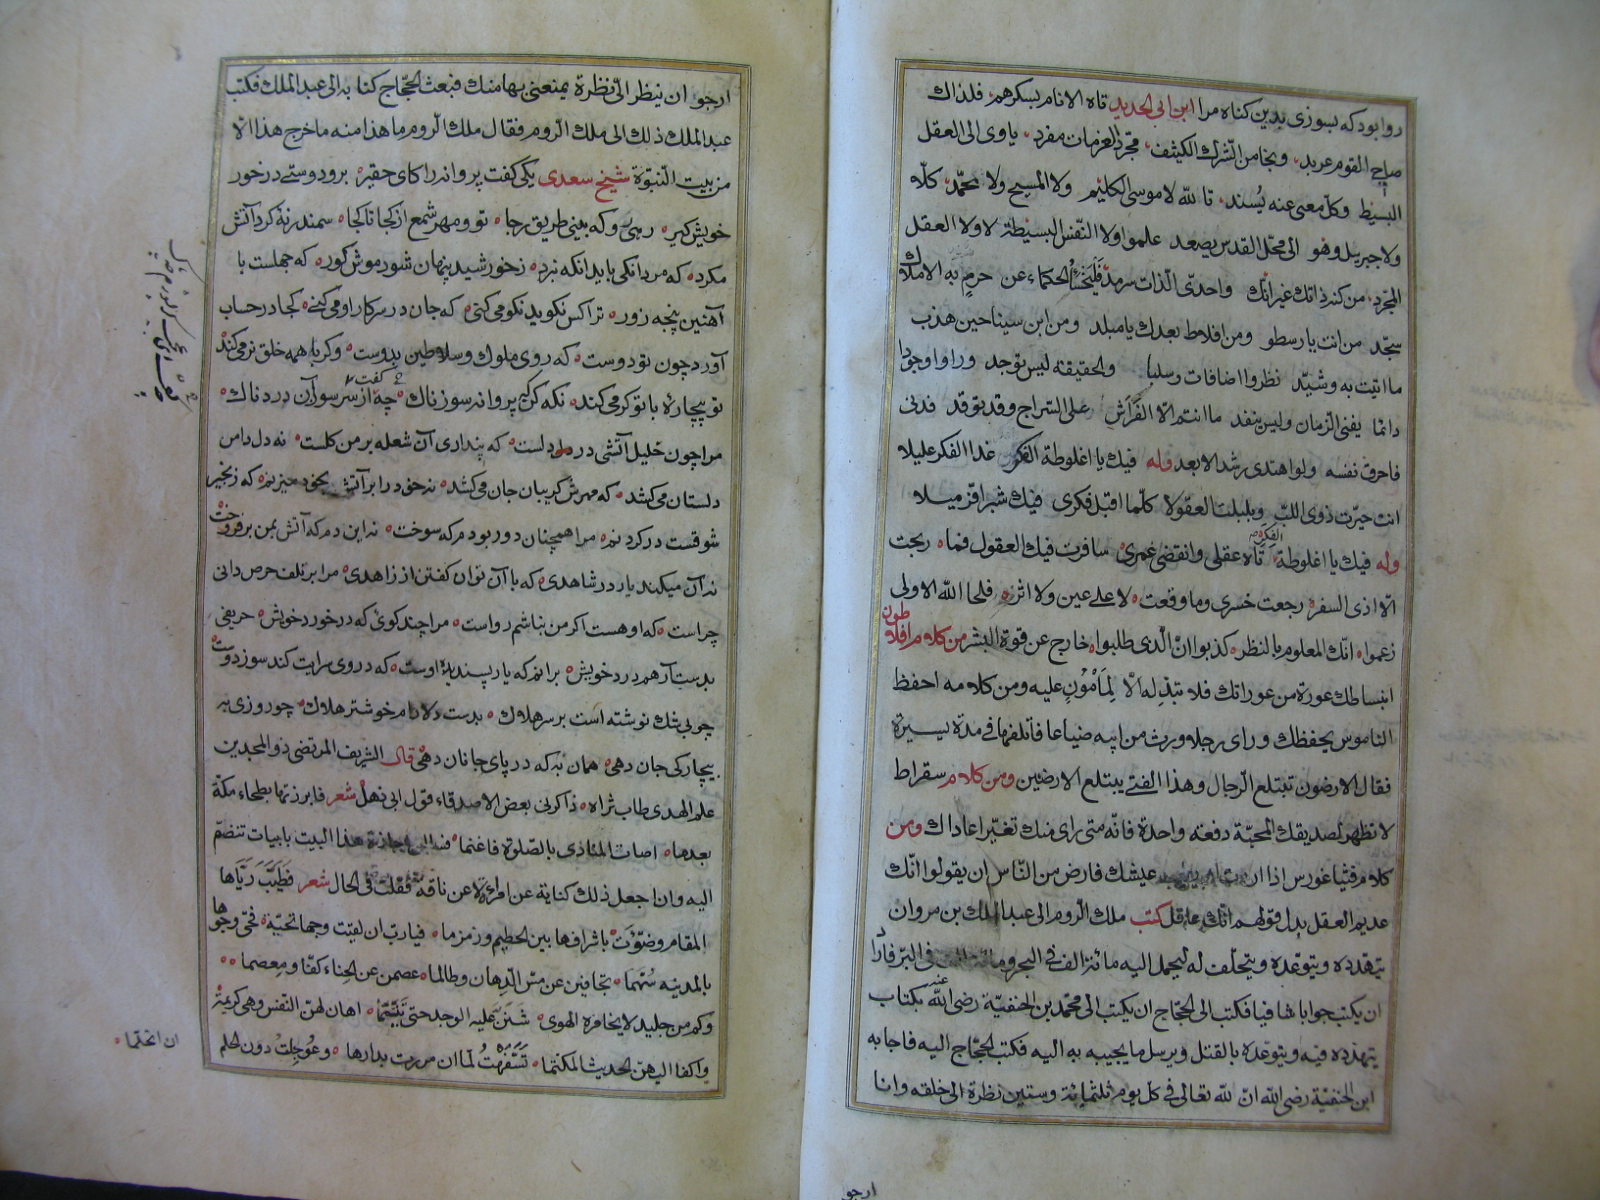 روا بود که بسوزی بدین کناه مرا ابن ابی الحدید تاه الانام بسکرهم فلذاك
صاحی القوم عربد ونجا من الشرك الکثیف مجرد العزمات مفرد یاوی الی العقل
البسیط وکل معنی عنه یُسند تالله لا موسی الکلیم ولا المسیح ولا محمد کلا
ولا جبریل وهو الی محل القدس یصعد علموا ولا النفس البسیطة لا ولا العقل
المجرد من کنه ذاتك غیر انك واحدی الذات سرمد فلیخسأ الحکماء عن حرم به الاملاك
سجد من انت یا رسطو ومن افلاط بعدك یا مبلد ومن ابن سینا حین هذب
ما اتیت به وشید نظروا اضافات وسلبا والحقیقة لیس توجد وراوا وجودا
دائما یفنی الزمان ولیس ینفد ما انتم الا الفَراش علی السراج وقد توقد فدنی
فاحرق نفسه ولو اهتدی رشدا لابعد وله فیك یا اغلوطة الفکر غدا الفکر علیلا
انت حیرت ذوی اللب وبلبلت العقولا کلما اقبل فکری فیك شبرا فر میلا
وله فیك یا اغلوطة الفکر تاه عقلی وانقضی عمری سافرت فیك العقول فما ربحت
الا اذی السفر رجعت خسری وما وقعت لا علی عین ولا اثر فلحا الله الاولی
زعموا انك المعلوم بالنظر کذبوا ان الذی طلبوا خارج عن قوة البشر من کلام افلاطون
انبساطك عورة من عوراتك فلا تبذله الا لمأمون علیه ومن کلامه احفظ
الناموس یحفظك ورای رجلا ورث من ابیه ضیاعا فاتلفها فی مدة یسیرة
فقال الارضون تبتلع الرجال وهذا الفتی یبتلع الارضین ومن کلام سقراط
لا تظهر لصدیقك المحبة دفعة واحدة فانه متی رای منك تغیرا عاداك ومن
کلام فیثاغورس اذا اردت ان یطیب عیشك فارض من الناس ان یقولوا انك
عدیم العقل بدل قولهم انك عاقل کتب ملك الروم الی عبد الملك بن مروان
یتهدده ویتوعده ویتحلف له لیحمل الیه مائة الف فی البحر ومائة الف فی البر فاراد
ان یکتب جوابا شافیا فکتب الی الحجاج ان یکتب الی محمد بن الحنفیة رضی الله عنه بکتاب
یتهدده فیه ویتوعده بالقتل ویرسل ما یجیبه به الیه فکتب الحجاج الیه فاجابه
ابن الحنفیة رضی الله ان لله تعالی فی کل یوم ثلثمائة وستین نظرة الی خلقه وانا
ارجو
ارجو ان ینظر الی نظرة یمنعنی بها منك فبعث الحجاج کتابه الی عبد الملك فکتب
عبد الملك ذلك الی ملك الروم فقال ملك الروم ما هذا منه ما خرج هذا الا
من بیت النبوة شیخ سعدی یکی کفت پروانه را کای حقیر برو دوستی در خور
خویش کیر رهی رو که بینی طریق رجا تو و مهر شمع از کجا تا کجا سمندر نهٔ کرد آتش
مکرد که مردانکی باید انکه نبرد ز خورشید پنهان شود موش کور که جهلست با
آهنین پنجه زور ترا کس نکوید نکو می کنی که جان در سر کار او می کنی کجا در حساب
آورد چون تو دوست که روی ملوك و سلاطین بدوست وکر با همه خلق نرمی کند
تو بیچارهٔ با تو کرمی کند نکه کن که پروانه سوزناك چه کفت از سر سوز آن دردناك
مرا چون خلیل آتشی در دلست که پنداری آن شعله بر من کلست نه دل دامن
دلستان می کشد که مهرش کریبان جان می کشد نه خود را بر آتش بخود میزنم که زنجیر
شوقست در کردنم مرا همچنان دور بودم که سوخت نه این دم که آتش بمن بر فروخت
نه آن میکند یار در شاهدی که با آن توان کفتن از زاهدی مرا بر تلف حرص دانی
چراست که او هست اکر من نباشم رواست مرا چند کوئی که در خورد خویش حریفی
بدست آر همدرد خویش برانم که یار پسندیده اوست که در وی سرایت کند سوز دوست
چو بی شك نوشته است بر سر هلاك بدست دلارام خوشتر هلاك چو روزی به
بیچارکی جان دهی همان به که در پای جانان دهی قال الشریف المرتضی ذو المجدین
علم الهدی طاب ثراه ذاکرنی بعض الاصدقاء قول ابی دهبل شعر فابرزتها بطحاء مکة
بعدها اصات المنادی بالصلوة فاعتما فسألنی اجازة هذا البیت بابیات تنضم
الیه وان اجعل ذلك کنایة عن امراة لا عن ناقة فقلت فی الحال شعر فطیب ریاها
المقام وضوّت باشراقها بین الحطیم وزمزما فیا رب ان لقیت وجها تحیة فحی وجوها
بالمدینه سُهّما تجافین عن مس الدهان وطالما عصمن عن الحناء کفا ومعصما
وکم من جلید لا یخامره الهوی شنن علیه الوجد حتی تتیما اهان لهن النفس وهی کریمة
والقی الیهن الحدیث المکتما تسفهت لما ان مررت بدارها وعوجلت دون الحلم
ان اتحلما